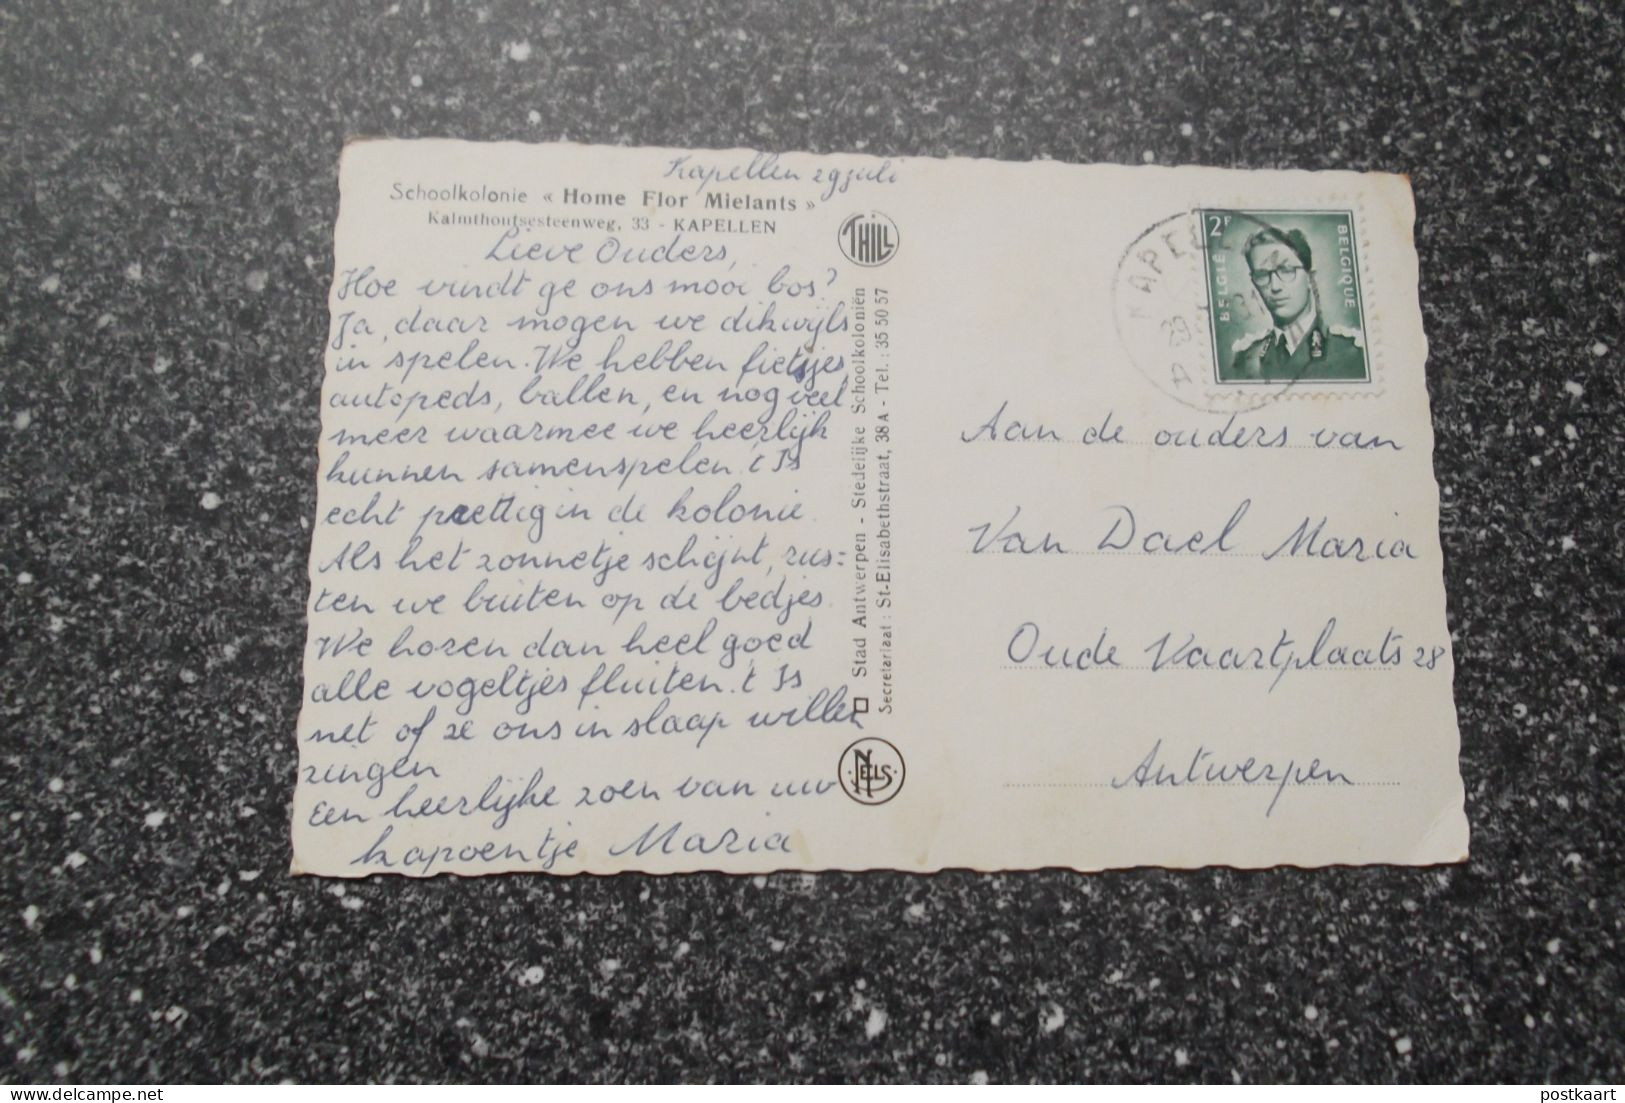 Kapellen 29 juli
Schoolkolonie « Home Flor Mielants »
Kalmthoutsesteenweg, 33 - KAPELLEN
Lieve Ouders,
Hoe vindt ge ons mooi bos?
Ja, daar mogen we dikwijls
in spelen. We hebben fietsjes
autopeds, ballen, en nog veel
meer waarmee we heerlijk
kunnen samenspelen. t Is
echt prettig in de kolonie.
Als het zonnetje schijnt, rus=
ten we buiten op de bedjes.
We horen dan heel goed
alle vogeltjes fluiten. t Is
net of ze ons in slaap willen
zingen
Een heerlijke zoen van uw
kapoentje Maria
THILL
Stad Antwerpen - Stedelijke Schoolkoloniën
Secretariaat : St-Elisabethstraat, 38A - Tel. : 35 50 57
NELS
2F
BELGIË
BELGIQUE
Aan de ouders van
Van Dael Maria
Oude Vaartplaats 28
Antwerpen
postkaart